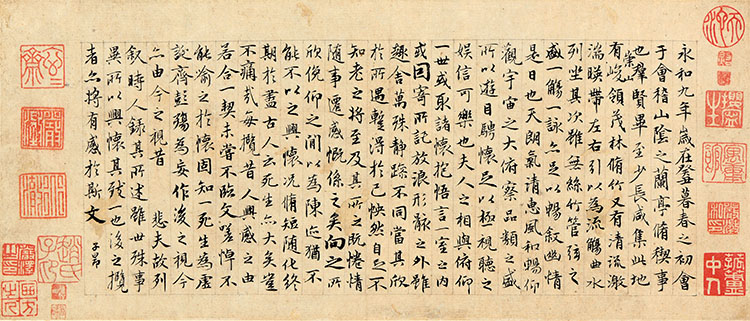 永和九年歲在癸丑暮春之初會
于會稽山陰之蘭亭脩禊事
也羣賢畢至少長咸集此地
有崇山峻領茂林脩竹又有清流激
湍暎帶左右引以為流觴曲水
列坐其次雖無絲竹管弦之
盛一觴一詠亦足以暢敘幽情
是日也天朗氣清惠風和暢仰
觀宇宙之大俯察品類之盛
所以遊目騁懷足以極視聽之
娛信可樂也夫人之相與俯仰
一世或取諸懷抱悟言一室之內
或因寄所託放浪形骸之外雖
趣舍萬殊靜躁不同當其欣
於所遇暫得於己怏然自足不
知老之將至及其所之既惓情
隨事遷感慨係之矣向之所
欣俛仰之間以為陳迹猶不
能不以之興懷況脩短隨化終
期於盡古人云死生亦大矣豈
不痛哉每攬昔人興感之由
若合一契未嘗不臨文嗟悼不
能喻之於懷固知一死生為虛
誕齊彭殤為妄作後之視今
亦由今之視昔 悲夫故列
敘時人錄其所述雖世殊事
異所以興懷其致一也後之攬
者亦將有感於斯文
子昂
趙氏子昂